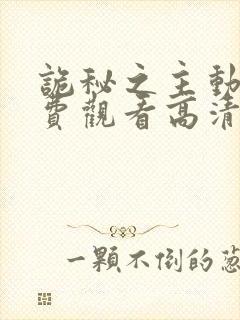 詭秘之主動
費觀看高清
一顆不倒的蔥